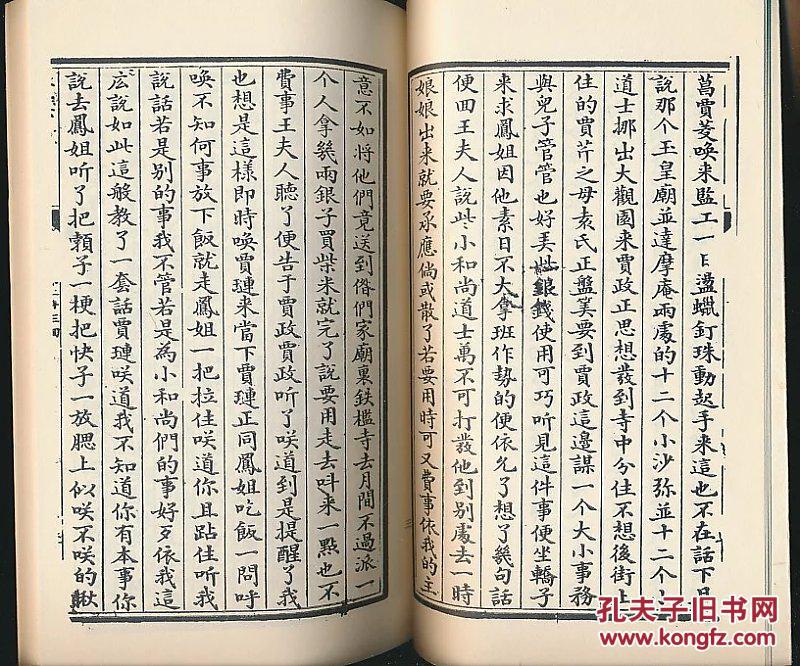 菖賈菱喚来監工一日盪蠟釘珠動起手来這也不在話下且
說那个玉皇廟並達摩庵兩處的十二个小沙弥並十二个小
道士挪出大觀園来賈政正思想發到寺中分住不想後街上
住的賈芹之母袁氏正盤筭要到賈政這邊謀一个大小事務
與兒子管管也好美些銀錢使用可巧听見這件事便坐轎子
来求鳳姐因他素日不大拿班作勢的便依允了想了幾句話
便回王夫人說些小和尚道士萬不可打發他到別處去一時
娘娘出来就要承應倘或散了若要用時可又費事依我的主
意不如將他們竟送到俗們家廟裏鉄檻寺去月間不過派一
个人拿幾兩銀子買柴米就完了說要用走去呌来一點也不
費事王夫人聽了便告于賈政賈政听了咲道到是提醒了我
也想是這樣即時喚賈璉来當下賈璉正同鳳姐吃飯一問呼
喚不知何事放下飯就走鳳姐一把拉住咲道你且跕住听我
說話若是別的事我不管若是為小和尚們的事好歹依我這
広說如此這般教了一套話賈璉咲道我不知道你有本事你
說去鳳姐听了把頼子一梗把快子一放腮上似咲不咲的瞅
二十三回
三
孔夫子旧书网
www.kongfz.com